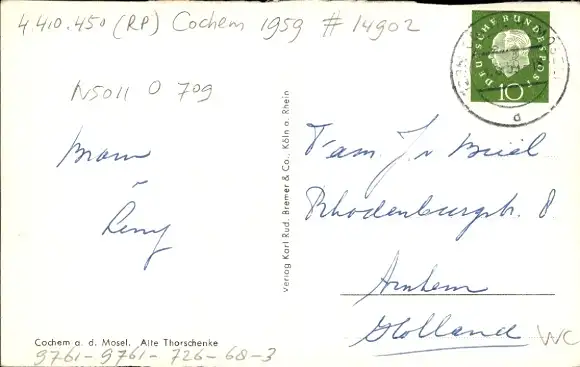 4 410.450 (RP) Cochem 1959 # 14902
N5011 O 709
DEUTSCHE BUNDESPOST
10
d
Bram
Leny
Verlag Karl Rud. Bremer & Co., Köln a. Rhein
Fam. J. v
Rhodenburgstr. 8
Arnhem
Holland
WC
Cochem a. d. Mosel. Alte Thorschenke
9761-9761-726-68-3